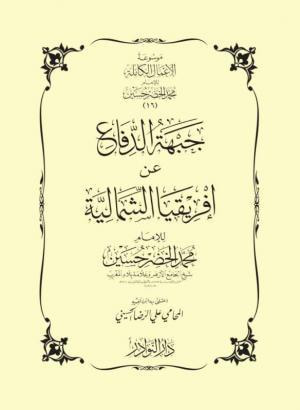 موسوعة
الأعمال الكاملة
للإمام
محمد الخضر حسين
(١٦)
جبهة الدفاع
عن
إفريقيا الشمالية
للإمام
محمد الخضر حسين
شيخ الجامع الأزهر وعلامة بلاد المغرب
اعتنى به
المحامي علي الرضا الحسيني
دار النوادر